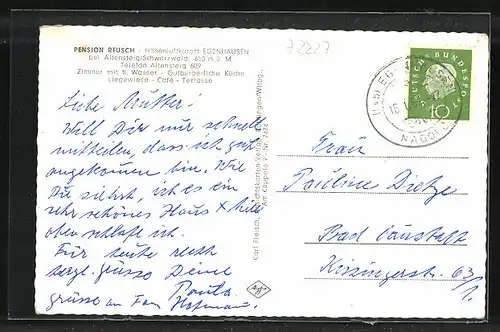 PENSION REUSCH - Höhenluftkurort EGENHAUSEN
bei Altensteig/Schwarzwald, 650 m ü. M
Telefon Altensteig 609
Zimmer mit fl. Wasser - Gutbürgerliche Küche
Liegewiese - Café - Terrasse
72227
Liebe Mutter!
Will Dir nur schnell
mitteilen, dass ich gut
angekommen bin. Wie
Du siehst, ist es ein
sehr schönes Haus
oben schlafe ich.
Für heute recht
herzl. Grüsse Deine
Paula
grüsse an Fam Hofmann
Karl Fleisch,
Am Kappele
Frau
Pauline Dietze
Bad Cannstatt
Kissingerstr. 63/1
DEUTSCHE BUNDESPOST
10
NAGOLD
Agfa